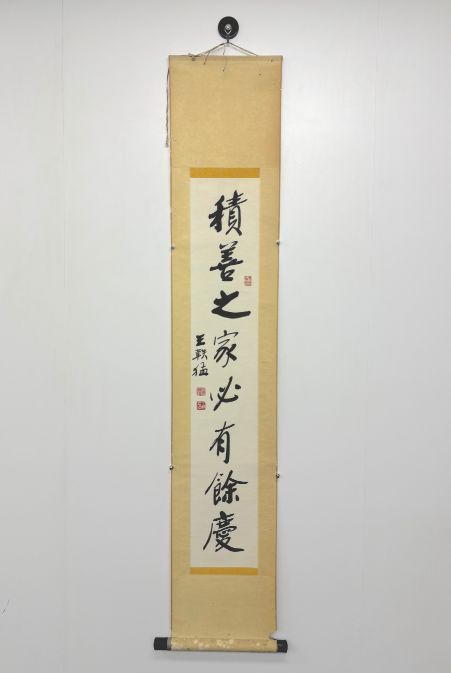 積善之家必有餘慶
王軼猛